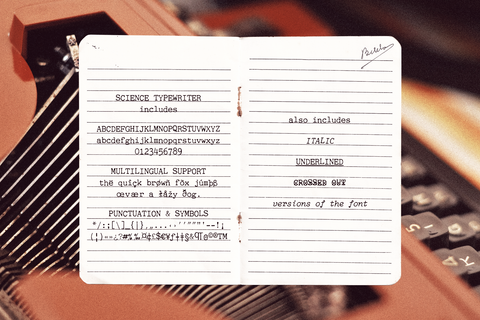 SCIENCE TYPEWRITER
includes
ABCDEFGHIJKLMNOPQRSTUVWXYZ
abcdefghijklmnopqrstuvwxyz
0123456789
MULTILINGUAL SUPPORT
œvær a
PUNCTUATION & SYMBOLS
also includes
ITALIC
UNDERLINED
CROSSED OUT
versions of the font